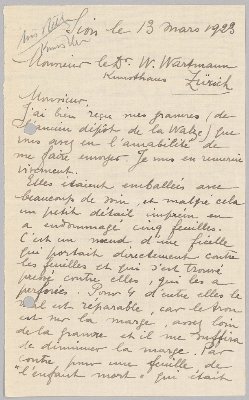 Sion le 13 mars 1923
Monsieur le Dr. W. Wartmann
Kunsthaus
Zürich
Monsieur,
J'ai bien reçu mes gravures (de
l'ancien dépôt de la Walze) que
vous avez eu l'amabilité de
me faire envoyer. Je vous en remercie
vivement.
Elles étaient emballées avec
beaucoup de soin, et malgré cela
un petit détail imprévu en
a endommagé cinq feuilles.
C'est un nœud d'une ficelle
qui portait directement contre
les feuilles et qui s'est trouvé
pressé contre elles, qui les a
perforées. Pour 4 d'entre elles le
mal est réparable, car le trou
est sur la marge, assez loin
de la gravure et il me suffira
de diminuer la marge. Par
contre, pour une feuille, de
"l'enfant mort" qui était